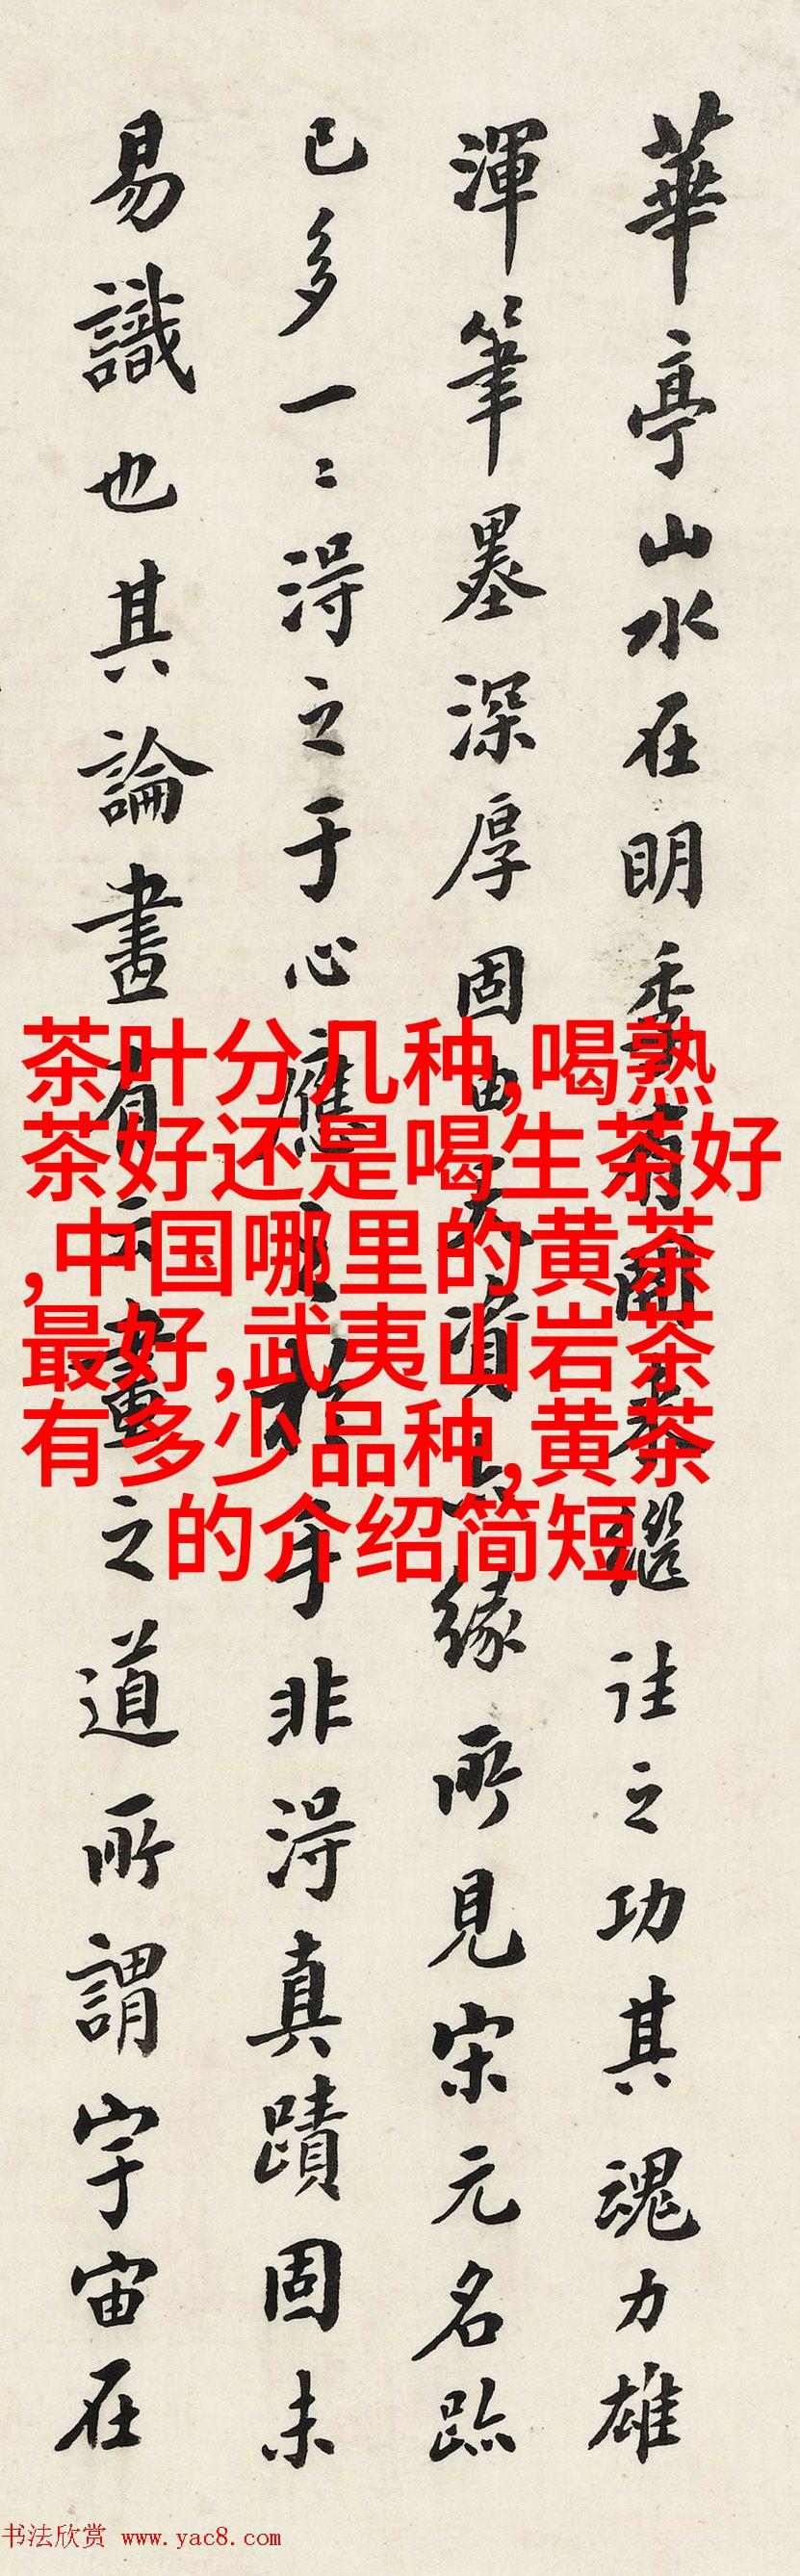 華亭山水在明季有開來繼往之功其魂力雄
渾筆墨深厚固由天資亦緣所見宋元名跡
已多一〻得之于心應之於手非得真蹟固未
易識也其論畫有云畫之道所謂宇宙在
茶叶分几种,喝熟
茶好还是喝生茶好
,中国哪里的黄茶
最好,武夷山岩茶
有多少品种,黄茶
的介绍简短
书法欣赏 www.yac8.com